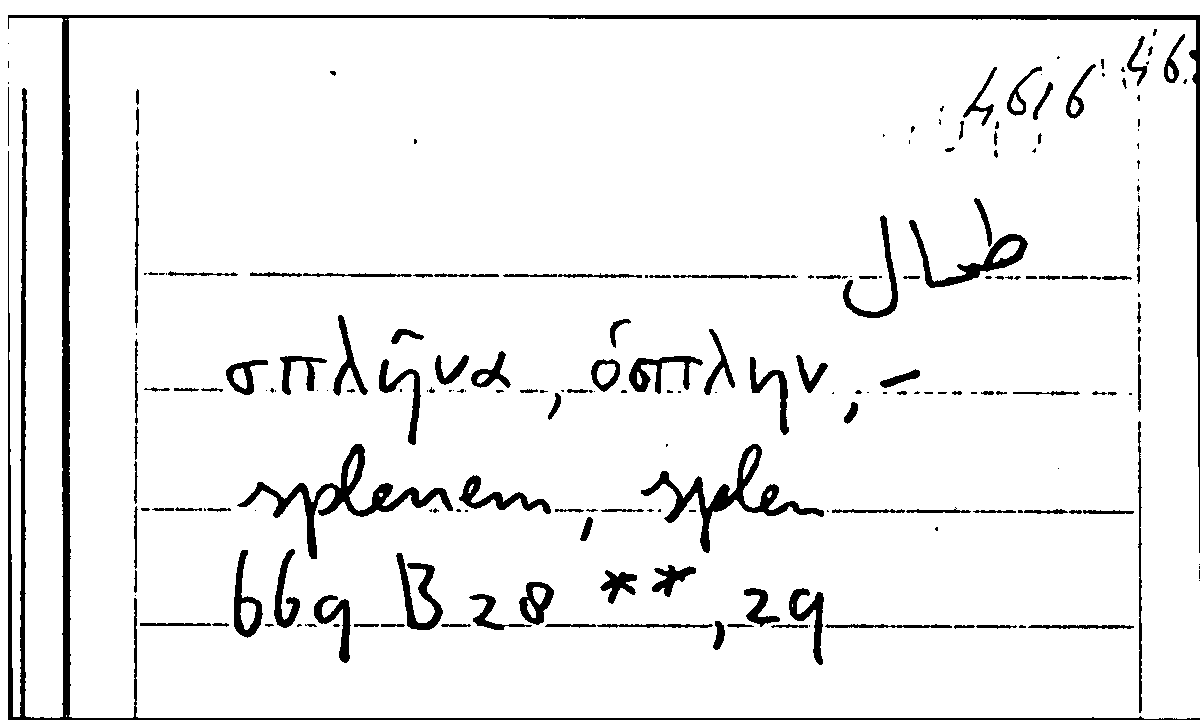 4616
طحال
σπλῆνα, ὁσπλην, –
splenem, splen
669 B 28 **, 29